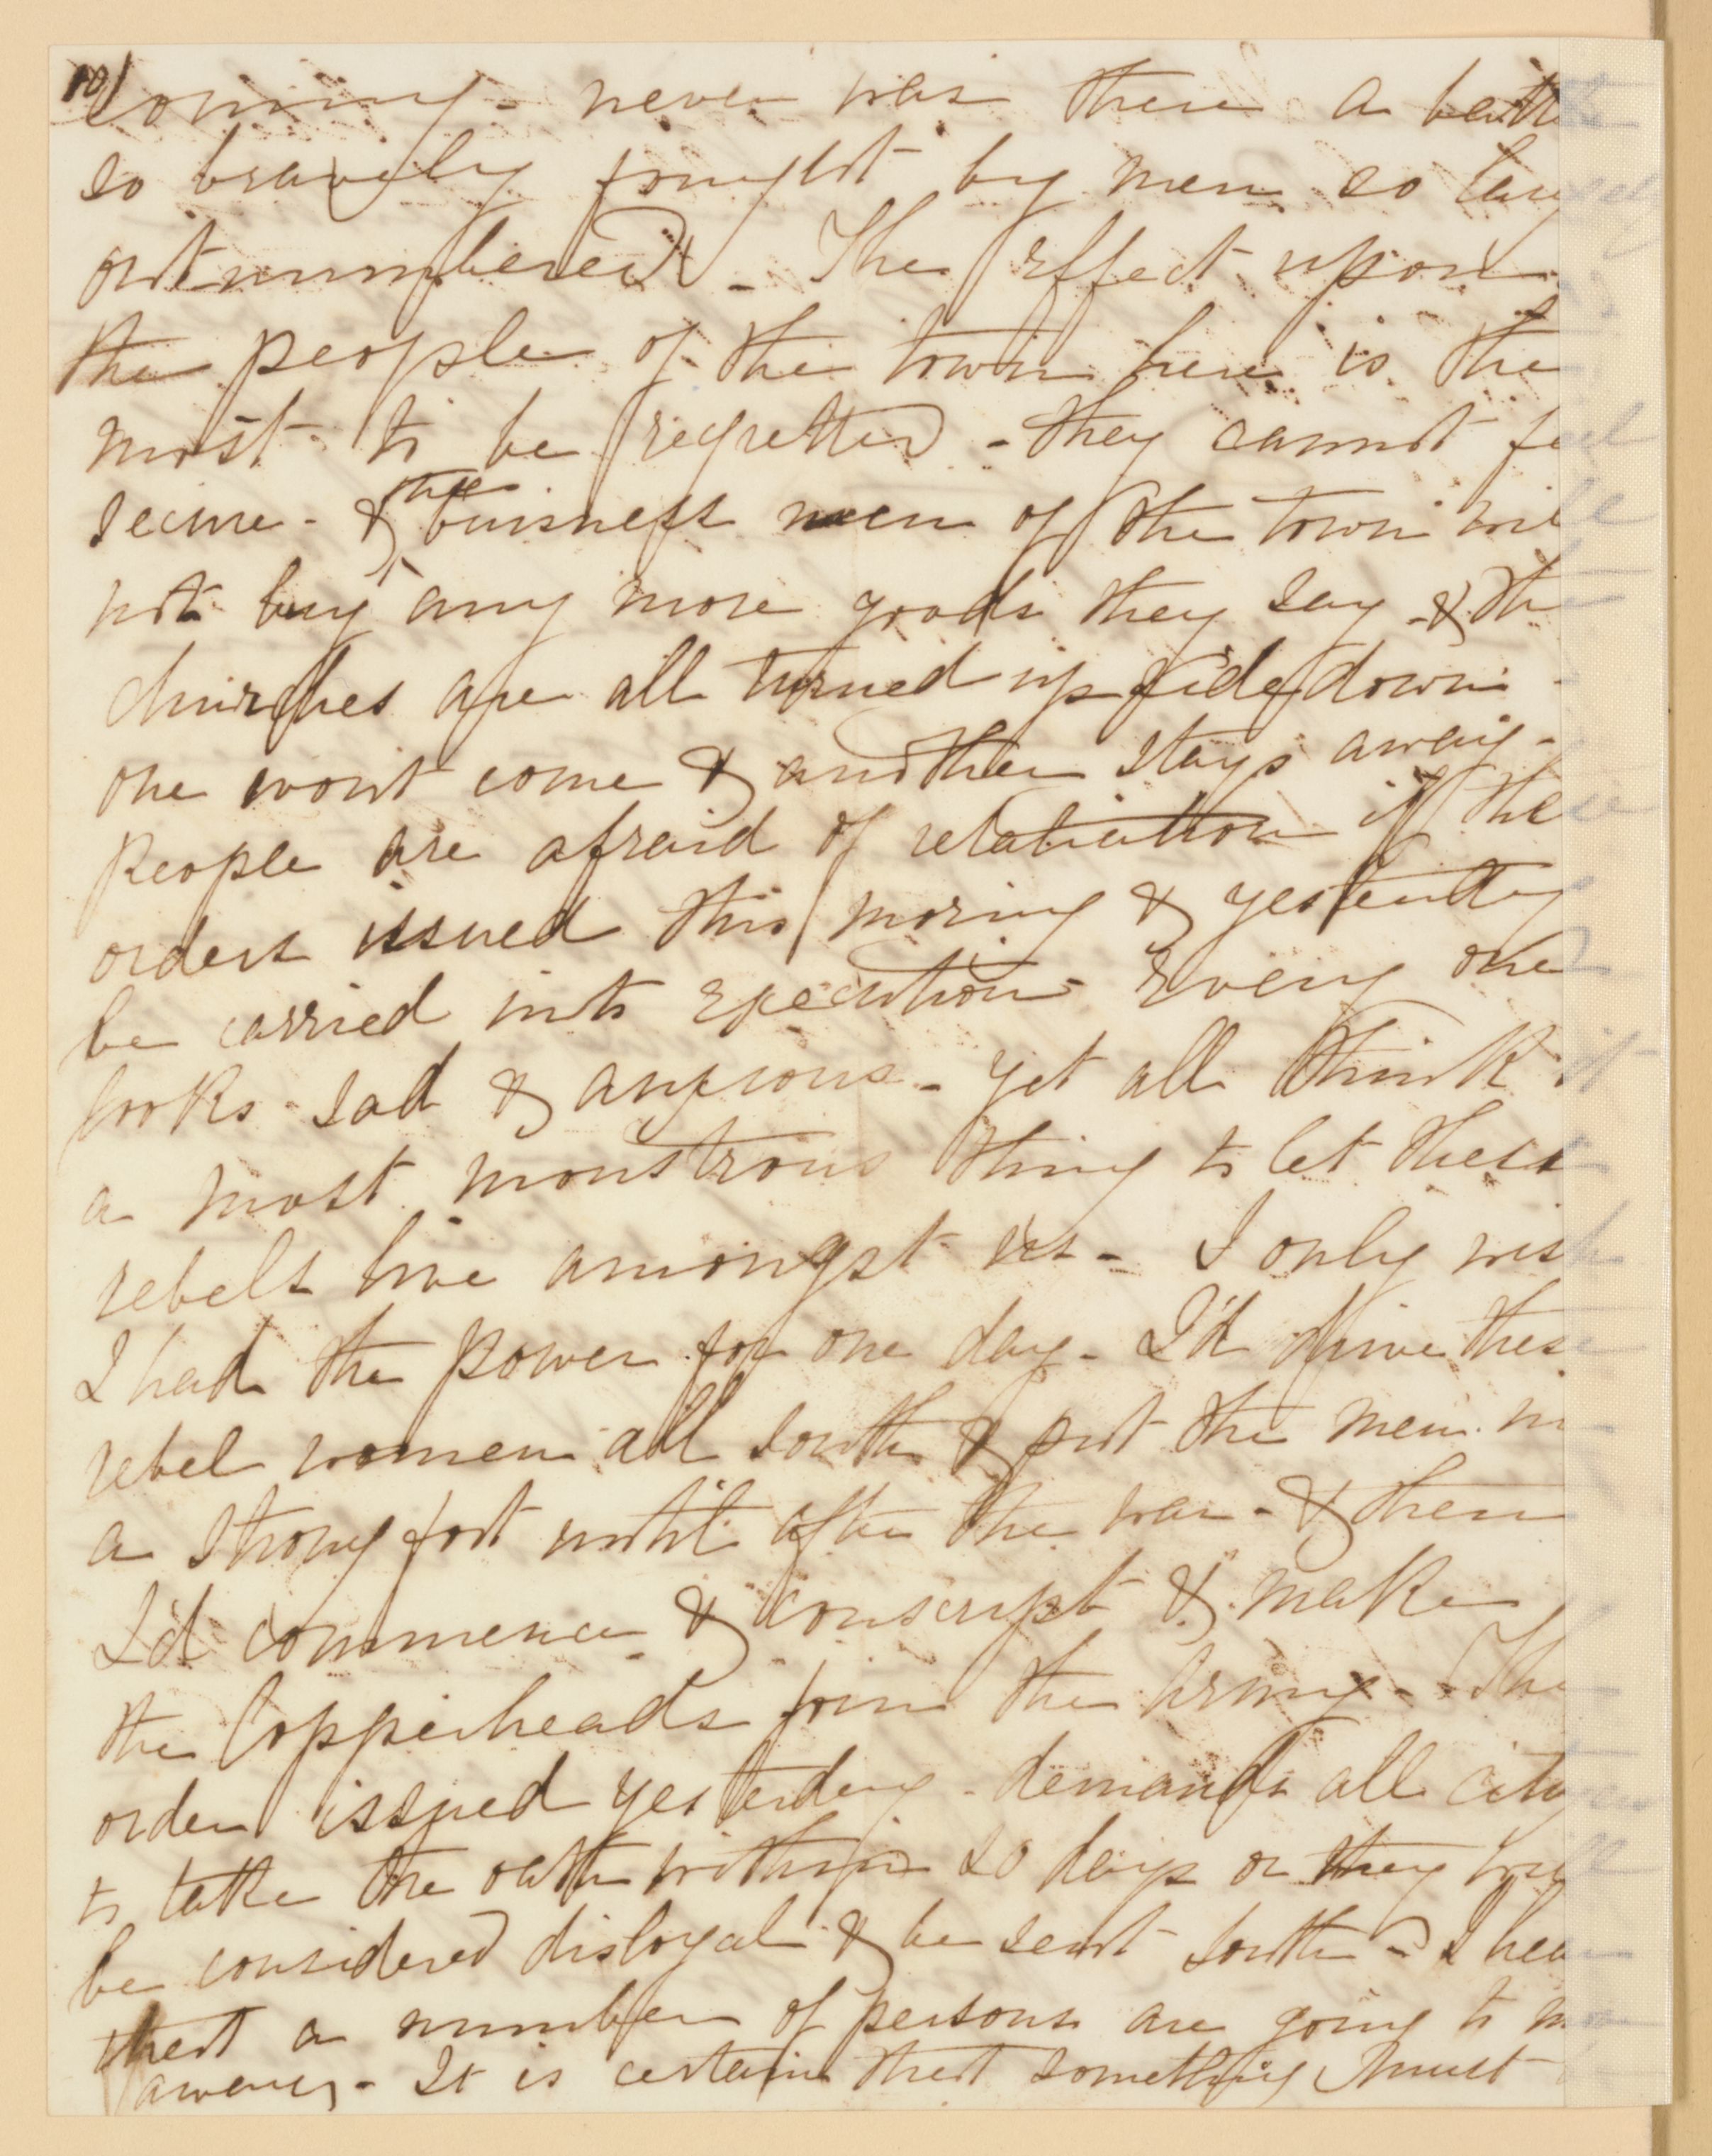 10/
coming - never was there a battle
so bravely fought by men so largely
outnumbered - The effect upon
the people of the town here is the
most to be regretted - they cannot feel
secure - & the buisness men of the town will
not buy any more goods they say - & the
churches are all turned up side down -
one won't come & another stays away -
People are afraid of retaliation if these
orders issued this moring & yesterday
be carried into execution - Every one
looks sad & anxious - yet all think it
a most monstrous thing to let these
rebels live amongst us - I only wish
I had the power for one day - I'd drive these
rebel women all south & put the men in
a strong fort until after the war - & then
I'd commence & conscript & make
the Copperheads join the Army - The
order issued yesterday - demands all
to take the oath within 20 days or they will
be considered disloyal & be sent south - I hear
that a number of persons are going to move
away - It is certain that something must